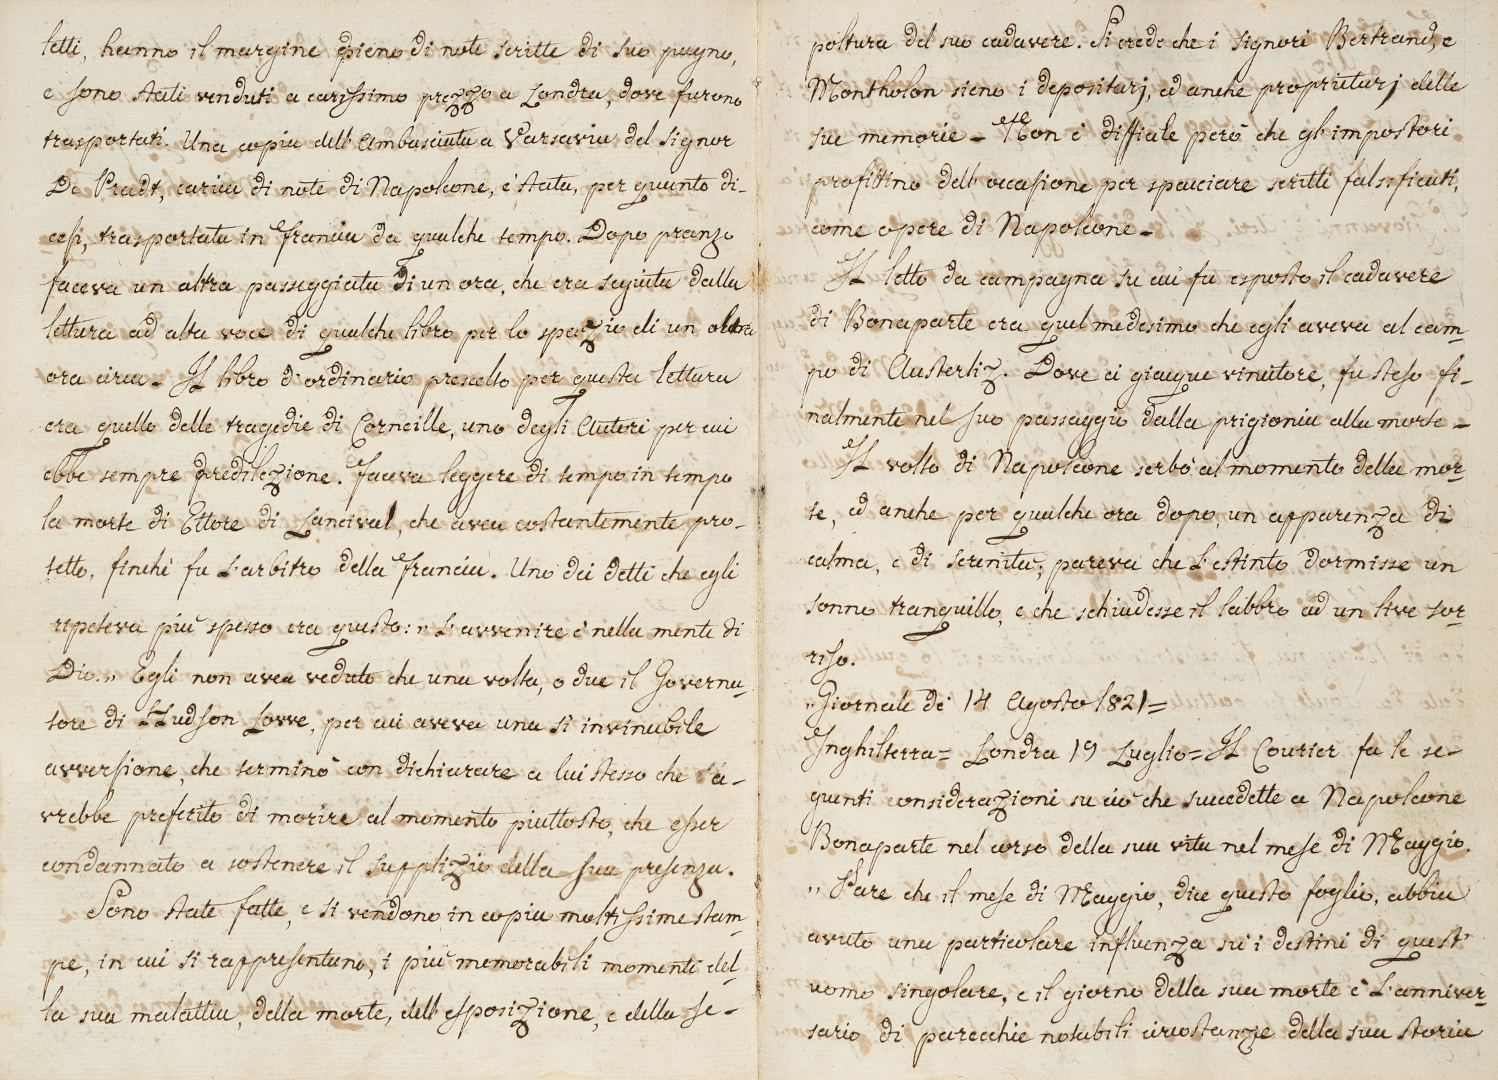 letti, hanno il margine pieno di note scritte di suo pugno,
e sono stati venduti a carissimo prezzo a Londra, dove furono
trasportati. Una copia dell'Ambasciata a Varsavia del Signor
De Pradt, carica di note di Napoleone, è stata, per quanto di-
cesi, trasportata in Francia da qualche tempo. Dopo pranzo
faceva un altra passeggiata di un ora, che era seguita dalla
lettura ad alta voce di qualche libro per lo spazio di un altra
ora circa. Il libro d'ordinario prescelto per questa lettura
era quello delle tragedie di Corneille, uno degli Autori per cui
ebbe sempre predilezione. Faceva leggere di tempo in tempo
la morte di Ettore di Lancival, che avea costantemente pro-
tetto, finchè fu l'arbitro della Francia. Uno dei detti che egli
ripeteva più spesso era questo: „ L'avvenire è nella mente di
Dio. „ Egli non avea veduto che una volta, o due il Governa-
tore di Hudson Lowe, per cui aveva una sì invincibile
avversione, che terminò con dichiarare a lui stesso che a-
vrebbe preferito di morire al momento piuttosto, che esser
condannato a sostenere il supplizio della sua presenza.
Sono state fatte, e si vendono in copia moltissime stam-
pe, in cui si rappresentano, i più memorabili momenti del-
la sua malattia, della morte, dell'esposizione, e della se-
poltura del suo cadavere. Si crede che i Signori Bertrand, e
Montholon sieno i depositarj, ed anche proprietarj delle
sue memorie = Non è difficile però che gl'impostori
profittino dell'occasione per spacciare scritti falsificati,
come opere di Napoleone =
Il letto da campagna su cui fu esposto il cadavere
di Bonaparte era quel medesimo che egli aveva al cam-
po di Austerliz. Dove ci giacque vincitore, fu steso fi-
nalmente nel suo passaggio dalla prigionia alla morte =
Il volto di Napoleone serbò al momento della mor-
te, ed anche per qualche ora dopo, un apparenza di
calma, e di serenità; pareva che l'estinto dormisse un
sonno tranquillo, e che schiudesse il labbro ad un live sor-
riso.
„ Giornale de' 14 Agosto 1821 =
Inghilterra = Londra 19 Luglio = Il Courier fa le se-
guenti considerazioni su ciò che succedette a Napoleone
Bonaparte nel corso della sua vita nel mese di Maggio.
„ Pare che il mese di Maggio, dice questo foglio, abbia
avuto una particolare influenza su i destini di quest'
uomo singolare, e il giorno della sua morte è l'anniver-
sario di parecchie notabili circostanze della sua storia